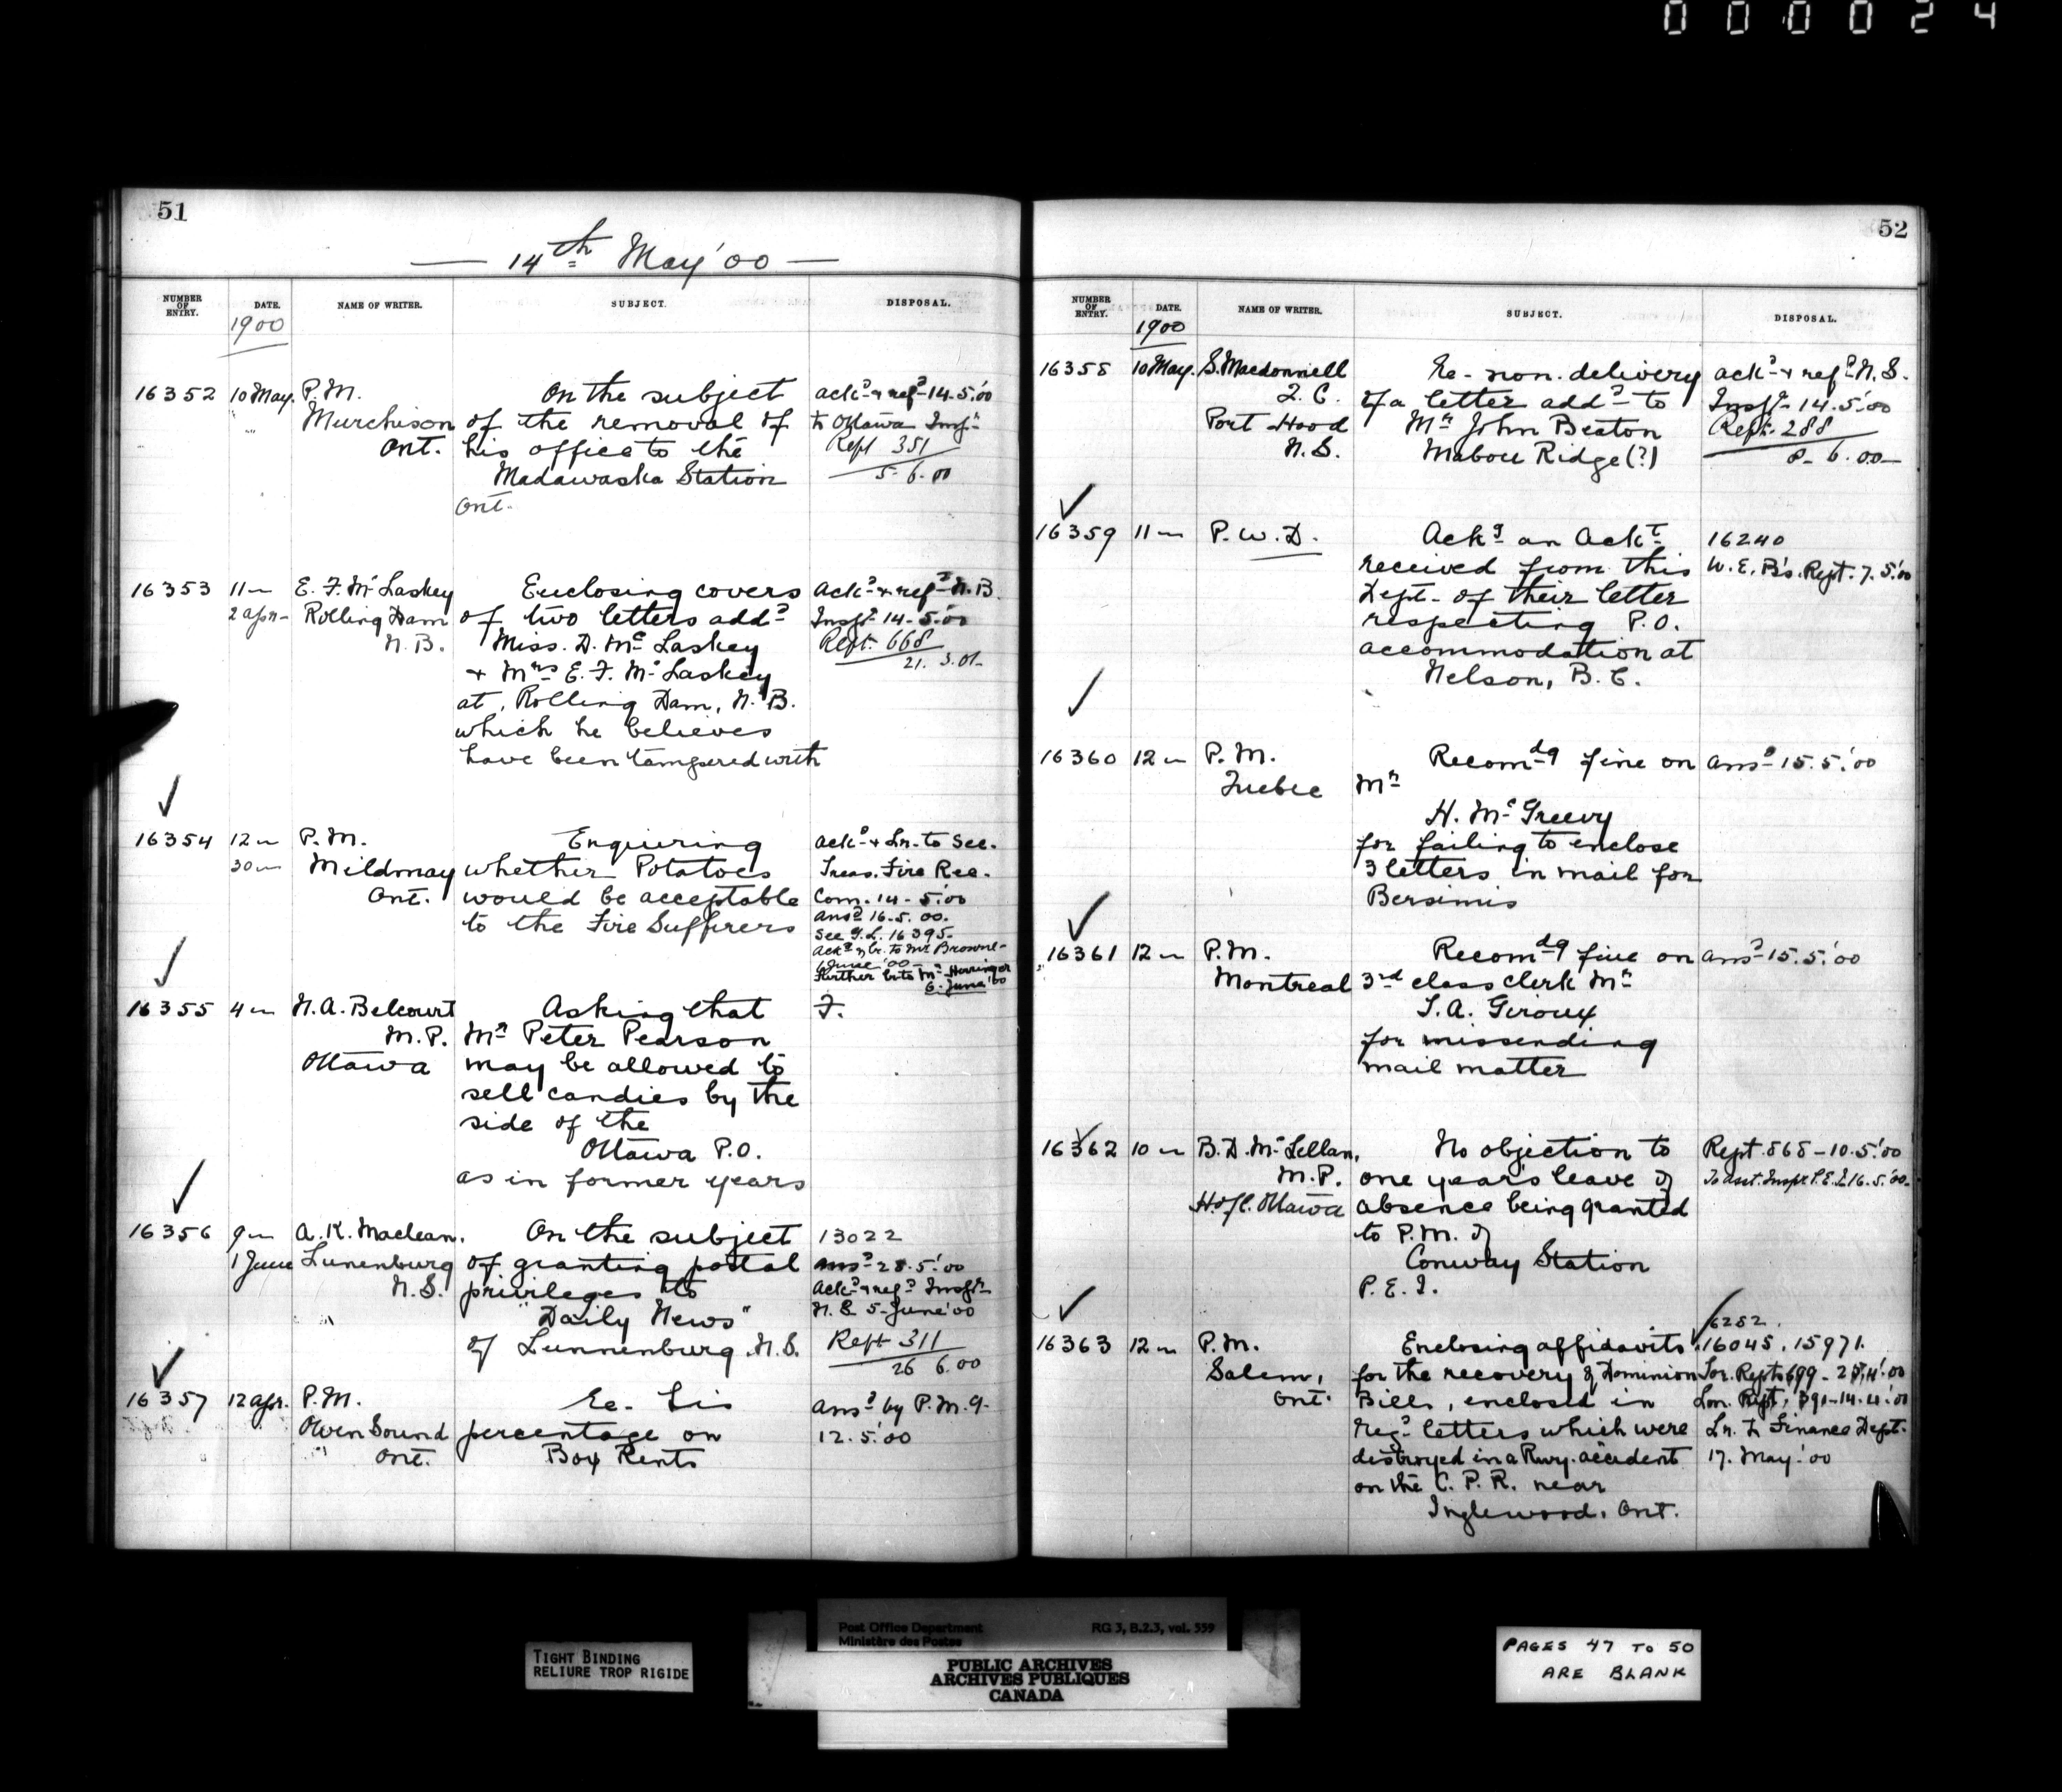 000024
51
14th May '00
NUMBER OF ENTRY.
DATE.
NAME OF WRITER.
SUBJECT.
DISPOSAL.
1900
16352 10 May. P.M. On the subject ackd & refd 14.5.'00
Murchison of the removal of to Ottawa Inspr
Ont. his office to the Rept 351
Madawaska Station 5-6.00
Ont.
16353 11 " E. F. McLaskey Enclosing covers Ackd & refd N.B.
2 apr- Rolling Dam of two letters addd Inspr 14-5.'00
N.B. Miss. D. McLaskey Rept. 668
& Mrs E. F. McLaskey 21. 3.01-
at Rolling Dam, N.B.
which he believes
have been tampered with
16354 12 " P.M. Enquiring Ackd & Lr. to Sec.
30 " Mildmay whether Potatoes Treas. Fire Rec.
Ont. would be acceptable Com. 14-5.'00
to the Fire Sufferers ansd 16.5.00.
See G.L. 16395-
Ackd & Lr. to Mr Browne-
6 June '00-
Further Lr to Mr
6. June '00
16355 4 " N. A. Belcourt Asking that F.
M.P. Mr Peter Pearson
Ottawa may be allowed to
sell candies by the
side of the
Ottawa P.O.
as in former years
16356 9 " A. K. Maclean. On the subject 13022
1 June Lunenburg of granting postal ansd 28.5.'00
N.S. privileges to Ackd & refd Inspr
"Daily News" N.S. 5-June '00
of Lunnenburg. N.S. Rept 311
26 6.00
16357 12 apr. P.M. Re. His Ansd by P.M.G.
Owen Sound percentage on 12.5.'00
Ont. Box Rents
52
NUMBER OF ENTRY.
DATE.
NAME OF WRITER.
SUBJECT.
DISPOSAL.
1900
16358 10 May. S. Macdonnell Re- non-delivery ackd & refd N.S.
Q.C. of a letter addd to Inspr 14.5.'00
Port Hood Mr John Beaton Rept. 288
N.S. Mabou Ridge (?) 8-6.00-
16359 11 " P.W.D. Ackg an Ackt 16240
received from this W. E. B's. Rept. 7.5.'00
Dept- of their letter
respecting P.O.
accommodation at
Nelson, B.C.
16360 12 " P.M. Recomdg fine on ansd 15.5.'00
Quebec Mr
H. McGreevy
for failing to enclose
3 letters in mail for
Bersimis
16361 12 " P.M. Recomdg fine on ansd 15.5.'00
Montreal 3rd class clerk Mr
T.A. Giroux
for missending
mail matter
16362 10 " B. D. McLellan, No objection to Rept. 868-10.5.'00
M.P. one year's leave of To asst. Inspr P.E.I. 16.5.'00-
H. of C. Ottawa absence being granted
to P.M. of
Conway Station
P.E.I.
6282.
16363 12 " P.M. Enclosing affidavits 16045. 15971.
Salem, for the recovery of Dominion Tor. Rept 699-
Ont. Bills, enclosed in Lon. Rept. 891-14.4.'00
regd letters which were Lr. to Finance Dept.
destroyed in a Rwy. accident 17. May '00
on the C.P.R. near
Inglewood. Ont.
TIGHT BINDING
RELIURE TROP RIGIDE
Post Office Department RG 3, B.2.3, vol. 559
Ministère des Postes
PUBLIC ARCHIVES
ARCHIVES PUBLIQUES
CANADA
PAGES 47 TO 50
ARE BLANK